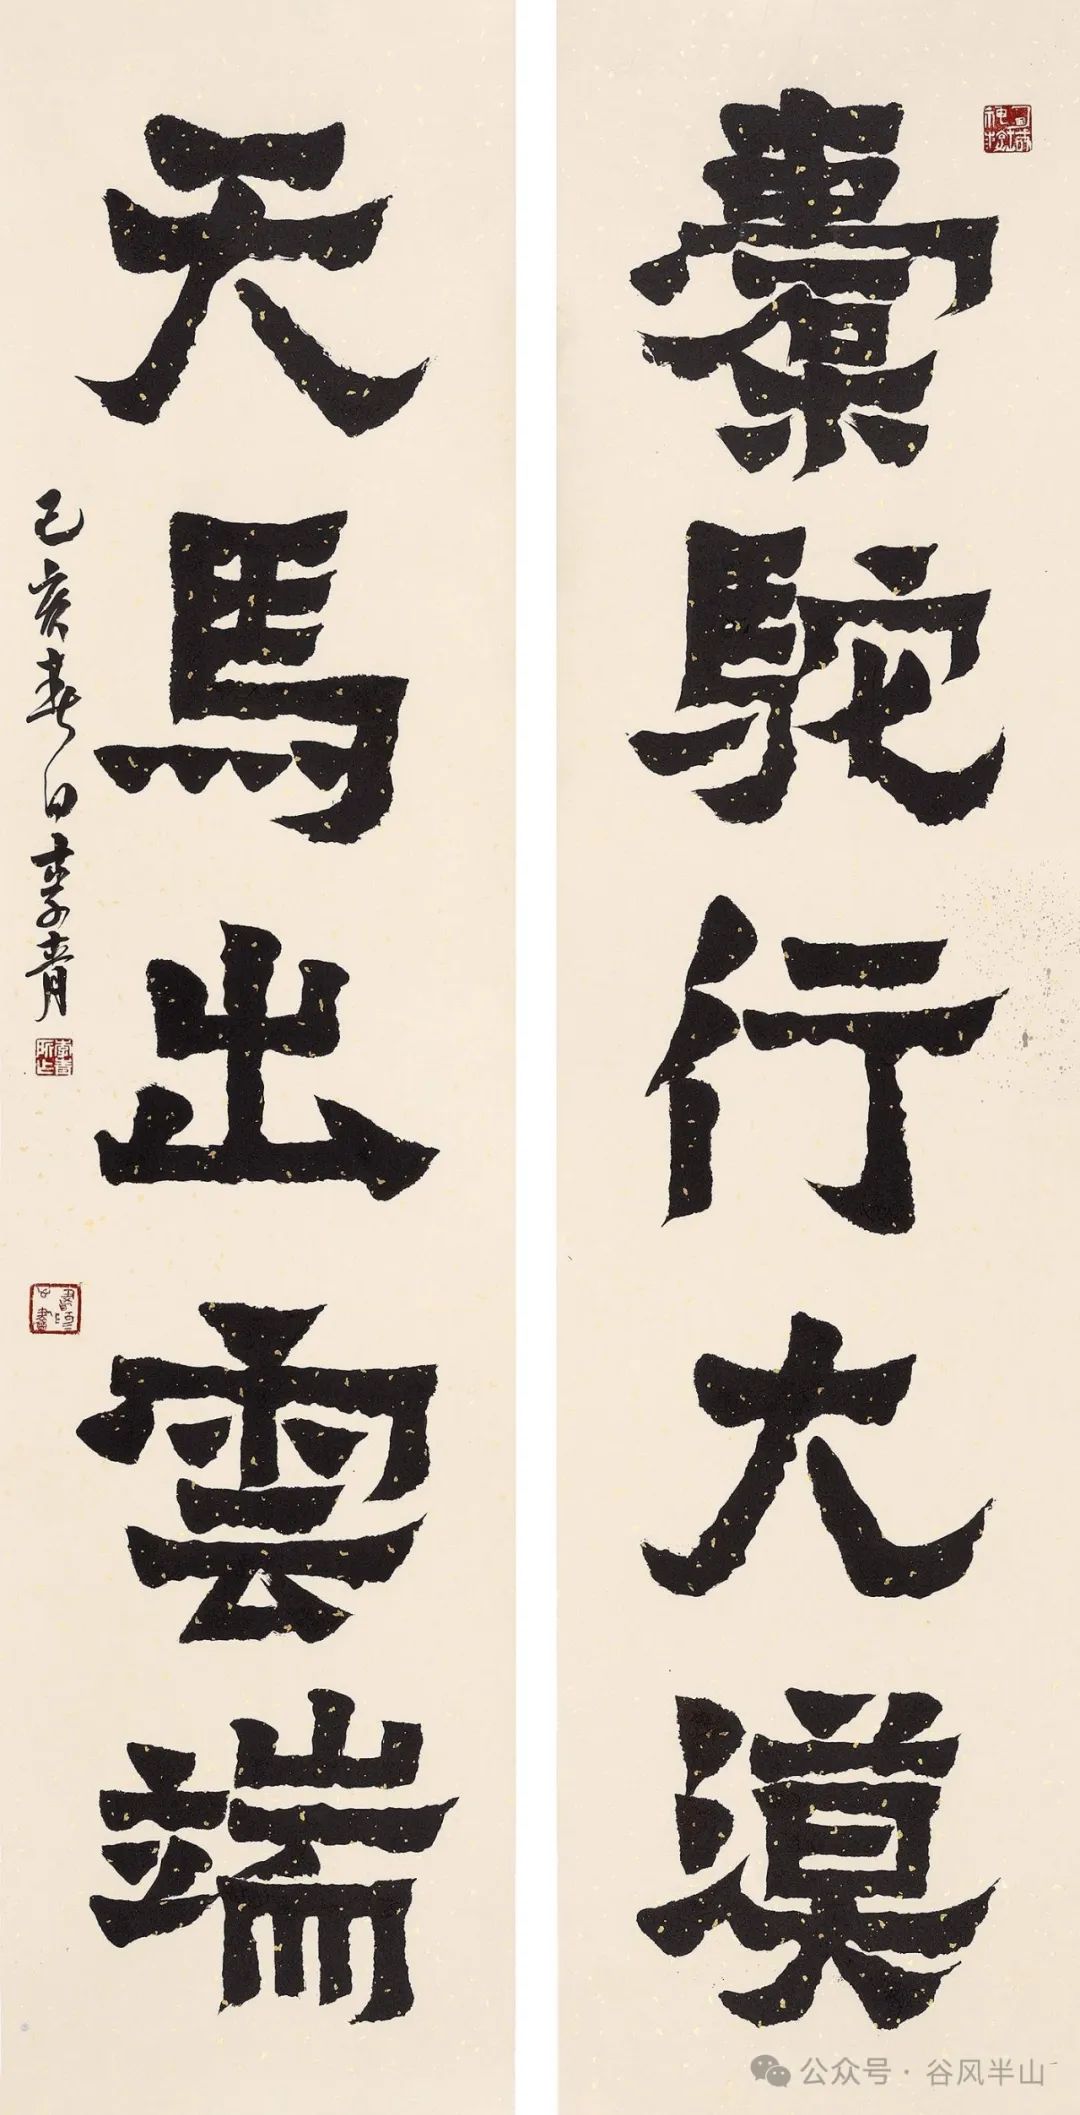 橐駝行大漠
天馬出雲端
己亥春日李青
公众号·谷风半山